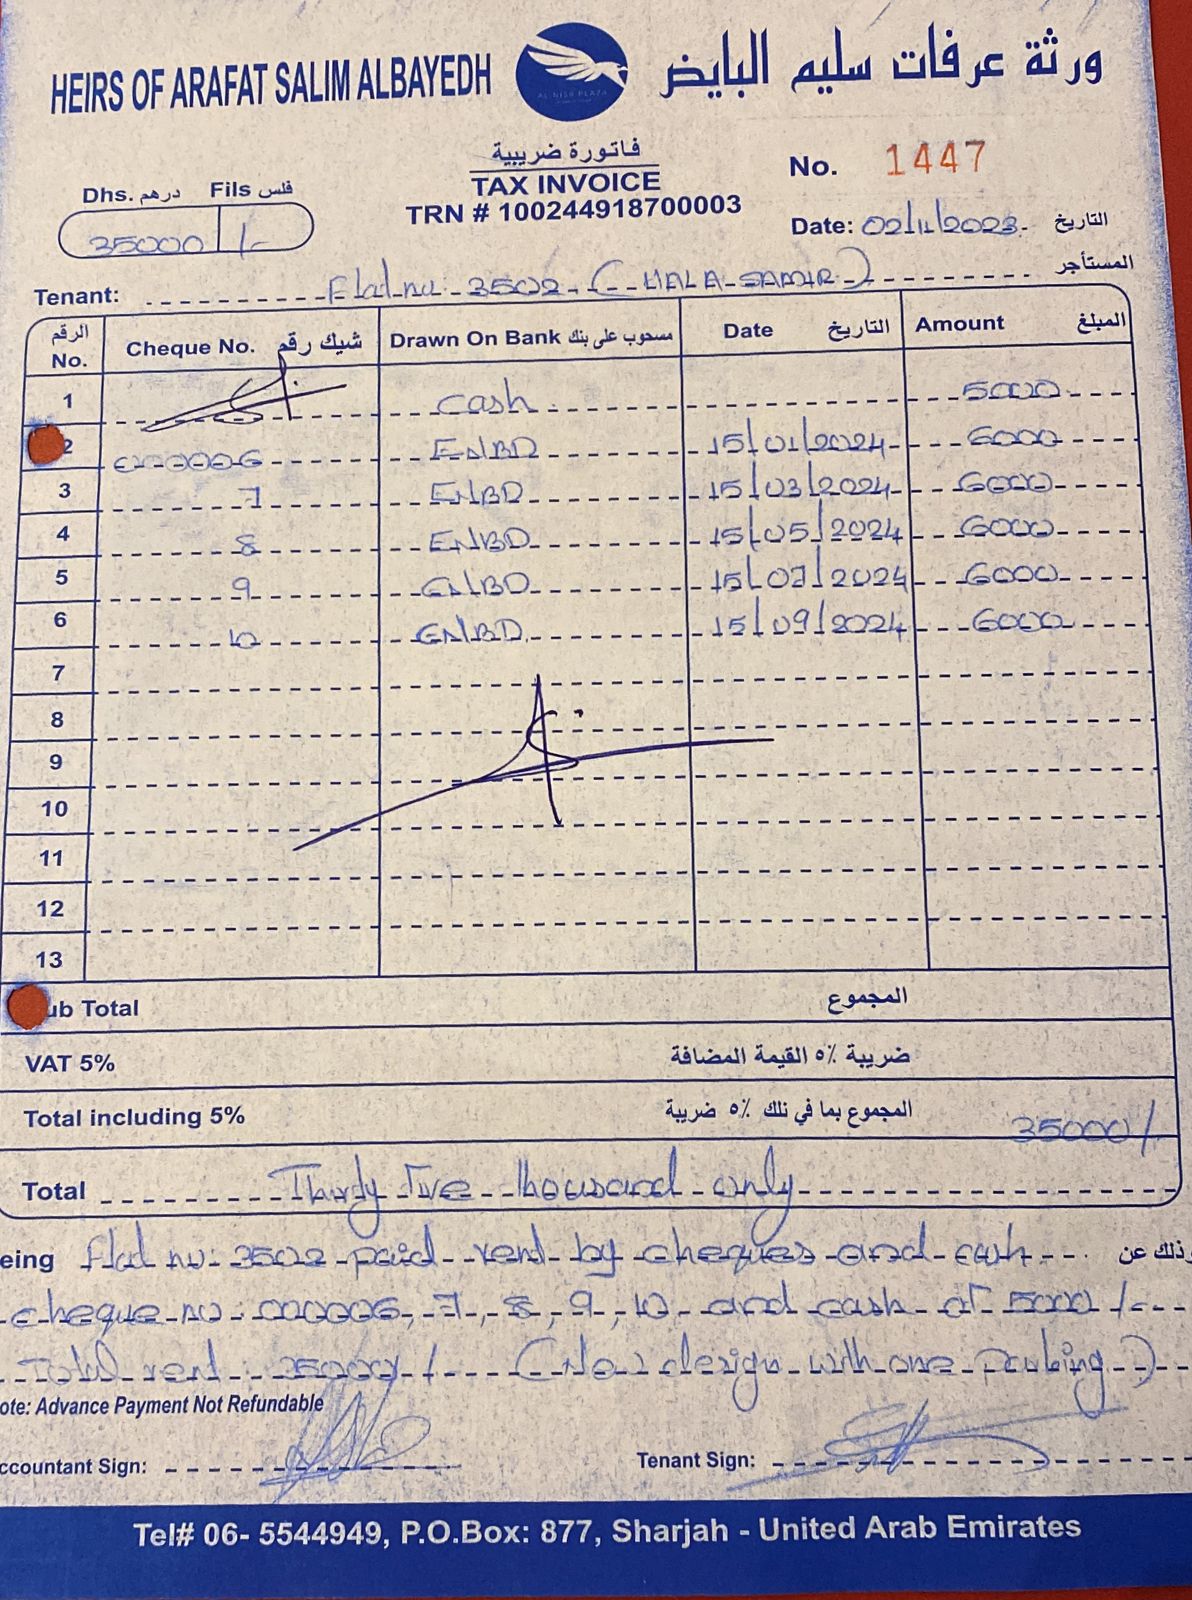 HEIRS OF ARAFAT SALIM ALBAYEDH
AL-NISR PLAZA
ورثة عرفات سليم البايض
فاتورة ضريبية
TAX INVOICE
TRN # 100244918700003
No. 1447
Dhs. درهم Fils فلس
35000 /-
Date: 02/11/2023 التاريخ
Tenant: Flat no: 3502 (HALA SAMIR) المستأجر
الرقم No. Cheque No. شيك رقم Drawn On Bank مسحوب على بنك Date التاريخ Amount المبلغ
1 cash 5000
2 000006 ENBD 15/01/2024 6000
3 7 ENBD 15/03/2024 6000
4 8 ENBD 15/05/2024 6000
5 9 ENBD 15/07/2024 6000
6 10 ENBD 15/09/2024 6000
7
8
9
10
11
12
13
ub Total المجموع
VAT 5% ضريبة ٥٪ القيمة المضافة
Total including 5% المجموع بما في تلك ٥٪ ضريبة 35000/-
Total Thirdy five thousand only
eing Flat no: 3502 paid rent by cheques and cash وذلك عن
cheque no: 000006, 7, 8, 9, 10 and cash of 5000/-
Total rent: 35000/- (No 2 design with one parking)
ote: Advance Payment Not Refundable
ccountant Sign:
Tenant Sign:
Tel# 06- 5544949, P.O.Box: 877, Sharjah - United Arab Emirates